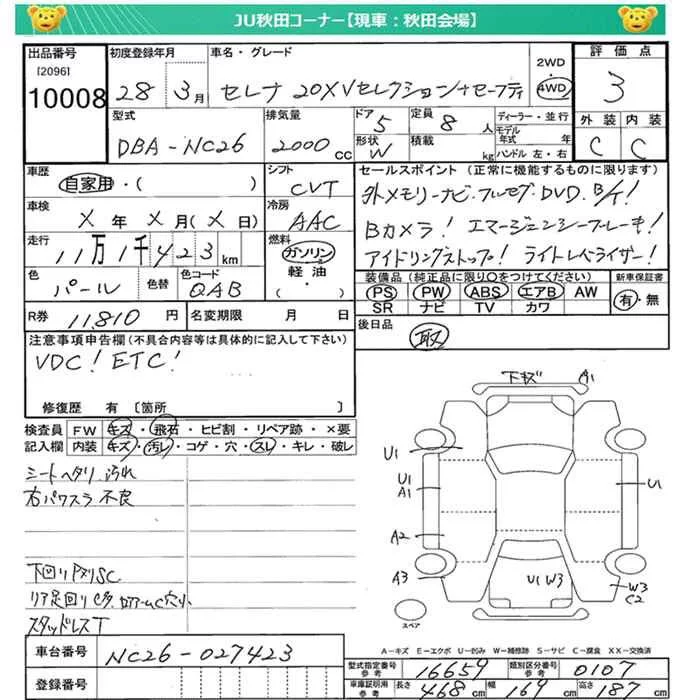 JU秋田コーナー【現車：秋田会場】
出品番号 [2096] 10008
初度登録年月 28年 3月
車名・グレード セレナ 20XVセレクション+セーフティ
2WD 4WD
評価点 3
外装 C 内装 C
型式 DBA-NC26
排気量 2000 cc
ドア 5 形状 W
定員 8 人 積載 kg
ディーラー・並行
モデル年式 年
ハンドル 左・右
車歴 自家用・( )
シフト CVT
車検 X年X月(X日)
冷房 AAC
走行 11万1千423km
燃料 ガソリン 軽油・( )
色 パール 色替 色コード QAB
R券 11,810円 名変期限 月 日
セールスポイント (正常に機能するものに限ります)
外メモリーナビ.フルセグ.DVD.B/T!
Bカメラ! エマージェンシーブレーキ!
アイドリングストップ! ライトレベライザー!
装備品(純正品に限り○をつけてください) 新車保証書
PS PW ABS エアB AW 有・無
SR ナビ TV カワ
後日品 取
注意事項申告欄(不具合内容等は具体的に記入して下さい)
VDC! ETC!
修復歴 有 [箇所 ]
検査員記入欄
FW キズ・飛石・ヒビ割・リペア跡・×要
内装 キズ・汚レ・コゲ・穴・スレ・キレ・破レ
シートヘタリ 汚れ
右パワスラ 不良
下回り
スタッドレスT
下キズ A1
U1
U1
A1
U1
A2
A3
U1 W3
W3
C2
スペア
A－キズ E－エクボ U－凹み W－補修跡 S－サビ C－腐食 XX－交換済
車台番号 NC26-027423
登録番号
型式指定番号 参考 16659 類別区分番号 参考 0107
車庫証明用 参考 長さ 468cm 幅 169cm 高さ 187cm